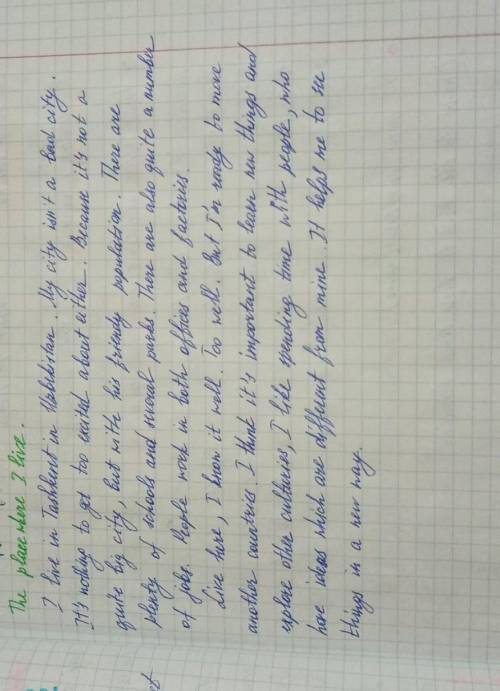 The place where I live.
I live in Tashkent in Uzbekistan. My city isn't a bad city.
It's nothing to get too excited about either. Because it's not a
quite big city, but with his friendly population. There are
plenty of schools and several parks. There are also quite a number
of jobs. People work in both offices and factories.
Live here, I know it well. Too well. But I'm ready to move
another countries. I think it's important to learn new things and
explore other cultures, I like spending time with people, who
have ideas which are different from mine. It helps me to see
things in a new way.